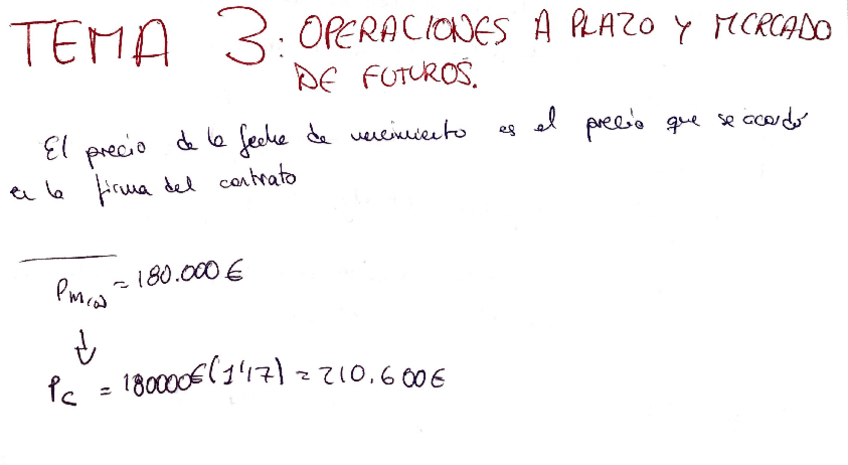 TEMA 3: OPERACIONES A PLAZO Y MERCADO
DE FUTUROS.
El precio de la fecha de vencimiento es el precio que se acordó
en la firma del contrato
PM(0) = 180.000€
↓
Pc = 180000€(1'17) = 210.600€